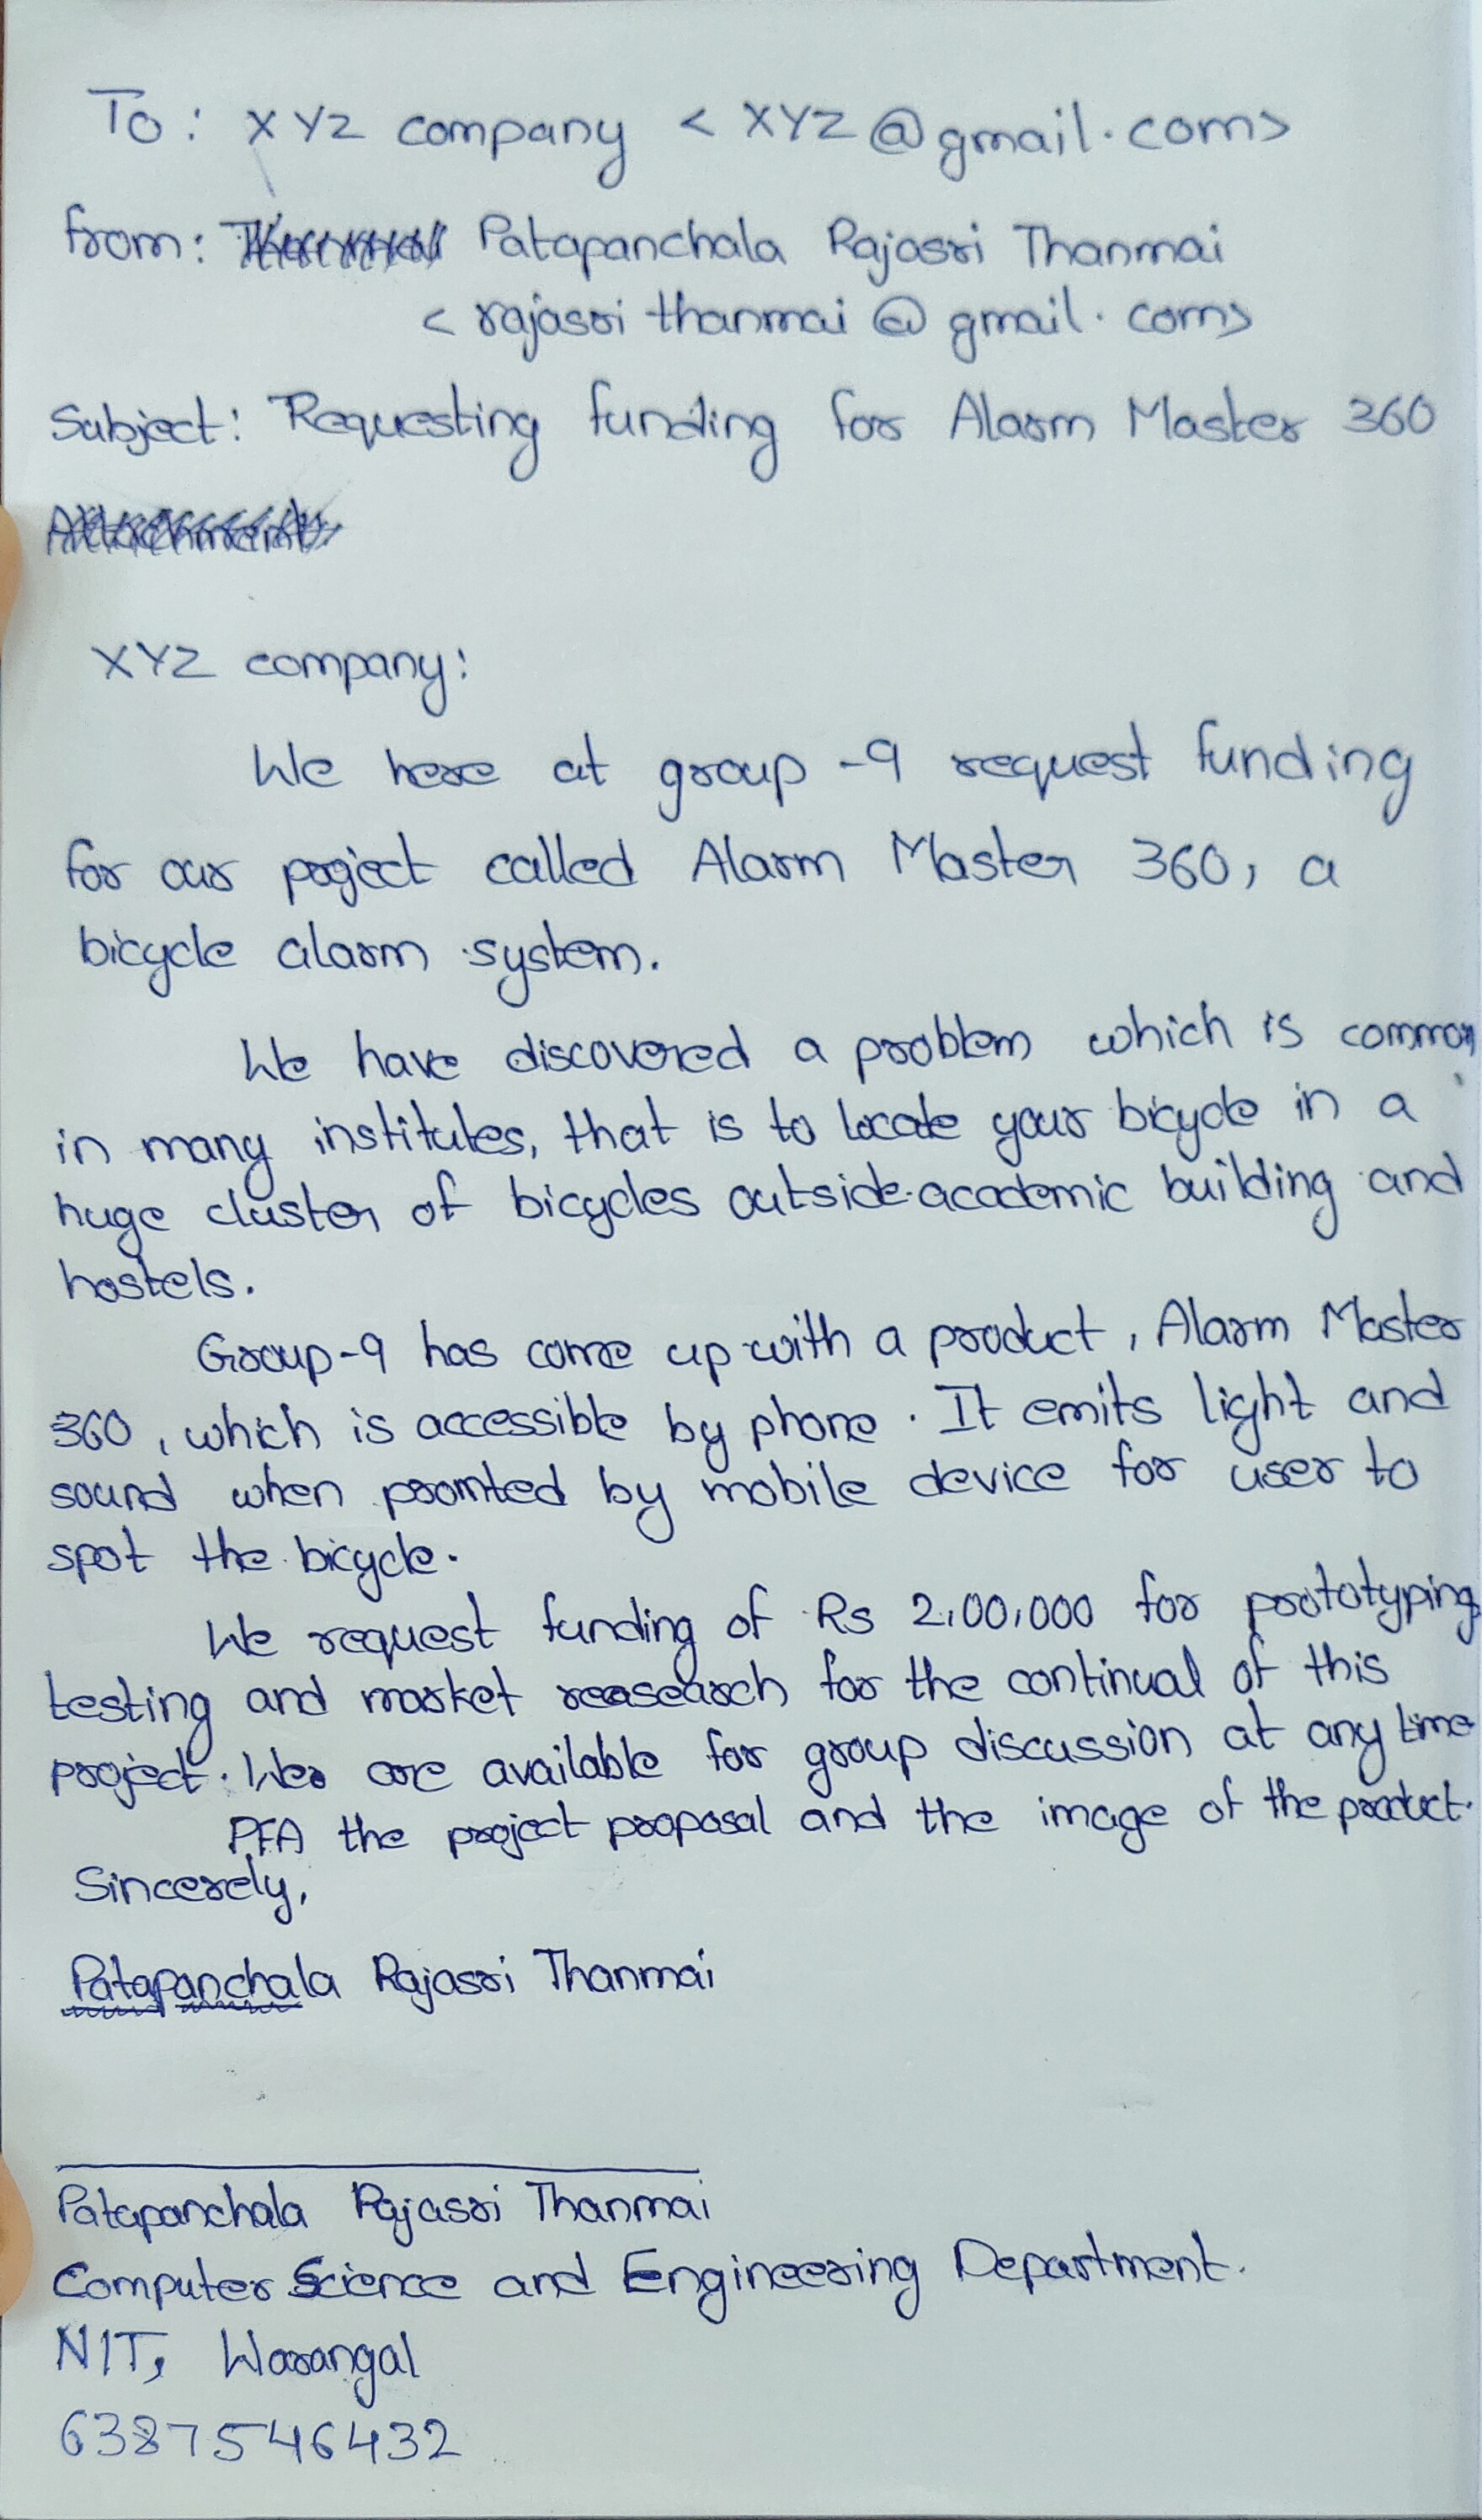 To: XYZ company < XYZ@gmail.com>
from: Patapanchala Rajasri Thanmai
< rajasri thanmai @ gmail. com>
Subject: Requesting funding for Alarm Master 360
XYZ company:
We here at group -9 request funding
for our project called Alarm Master 360, a
bicycle alarm system.
We have discovered a problem which is common
in many institutes, that is to locate your bicycle in a
huge cluster of bicycles outside academic building and
hostels.
Group-9 has come up with a product, Alarm Master
360, which is accessible by phone. It emits light and
sound when promted by mobile device for user to
spot the bicycle.
We request funding of Rs 2,00,000 for prototyping,
testing and market reasearch for the continual of this
project. We are available for group discussion at any time
PFA the project proposal and the image of the product.
Sincerely,
Patapanchala Rajasri Thanmai
Patapanchala Rajasri Thanmai
Computer Science and Engineering Department.
NIT, Warangal
6387546432